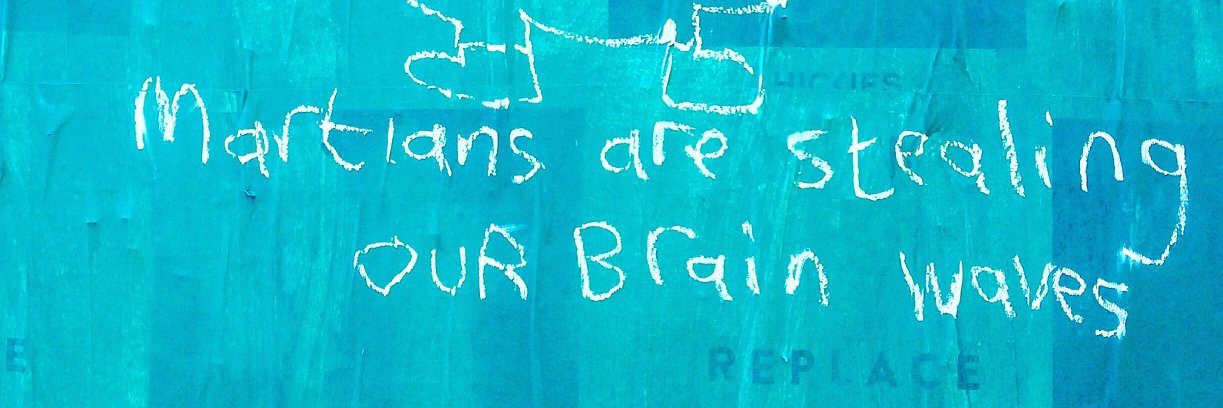 HICKIES
Martians are stealing
OUR Brain waves
REPLACE
E